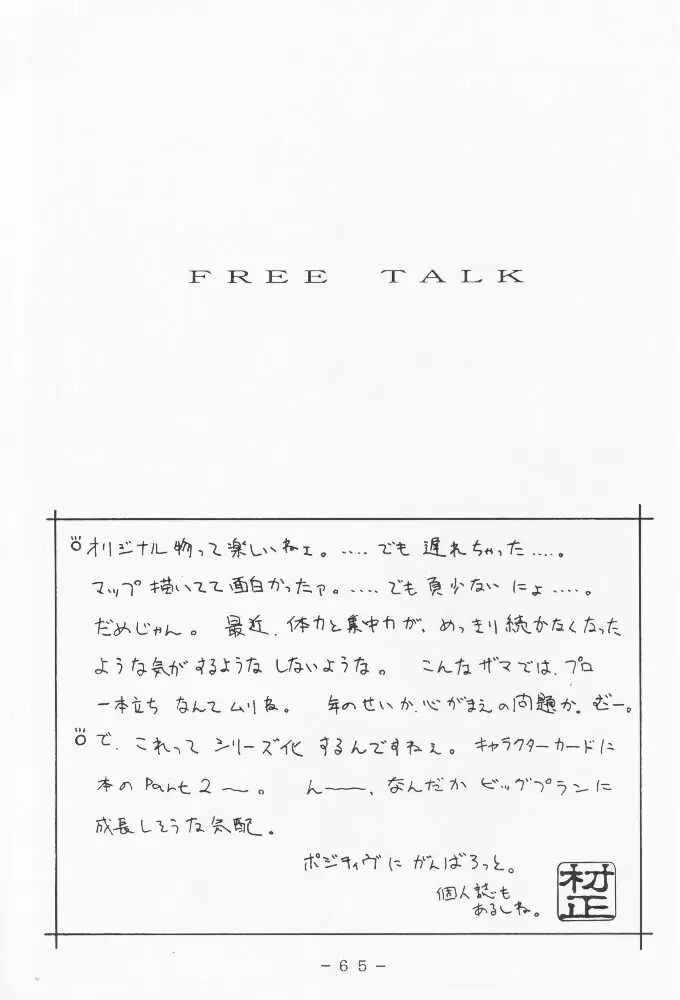 FREE TALK
オリジナル物って楽しいねェ。‥‥でも遅れちゃった‥‥。
マップ描いてて面白かったァ。‥‥でも頁少ないにょ‥‥。
だめじゃん。 最近、体力と集中力が、めっきり続かなくなった
ような気がするようなしないような。 こんなザマでは、プロ
一本立ちなんてムリね。 年のせいか、心がまえの問題か。むー。
で、これってシリーズ化するんですねぇ。キャラクターカードに
本のPart2〜。 ん――、なんだかビッグプランに
成長しそうな気配。
ポジティヴにがんばろっと。
個人誌も
あるしね。
村正
-65-